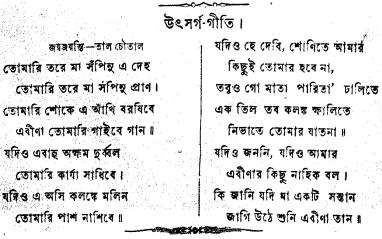 উৎসর্গ-গীতি।
জয়জয়ন্তি—তাল চৌতাল
তোমারি তরে মা সঁপিনু এ দেহ
তোমারি তরে মা সঁপিনু প্রাণ।
তোমারি শোকে এ আঁখি বরষিবে
এবীণা তোমারি গাইবে গান॥
যদিও এবাহু অক্ষম দুর্ব্বল
তোমারি কার্য্য সাধিবে।
যদিও এ অসি কলঙ্কে মলিন
তোমারি পাশ নাশিবে॥
যদিও হে দেবি, শোণিতে আমার
কিছুই তোমার হবে না,
তবুও গো মাতা পারিতা ঢালিতে
এক তিল তব কলঙ্ক ক্ষালিতে
নিভাতে তোমার যাতনা॥
যদিও জননি, যদিও আমার
এবীণার কিছু নাহিক বল।
কি জানি যদি মা একটি সন্তান
জাগি উঠে শুনি এবীণা তান॥